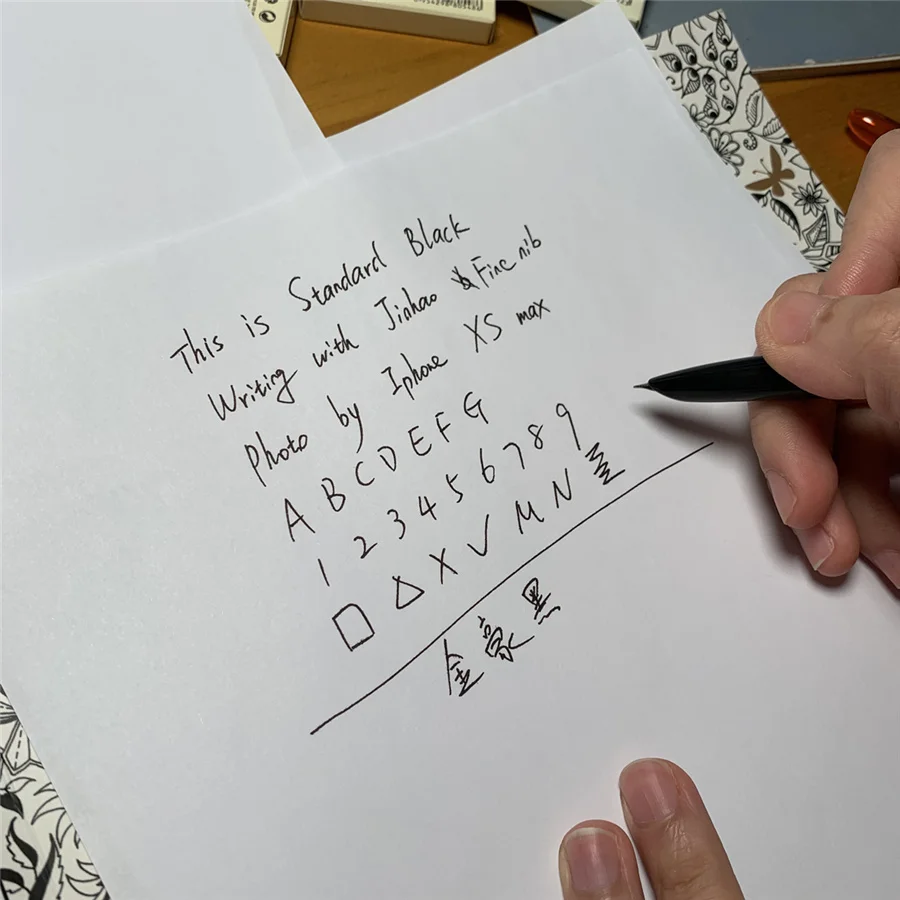 This is Standard Black
Writing with Jinhao Fine nib
photo by Iphone XS max
A B C D E F G
1 2 3 4 5 6 7 8 9
□ △ X ✓ M N
金豪黑